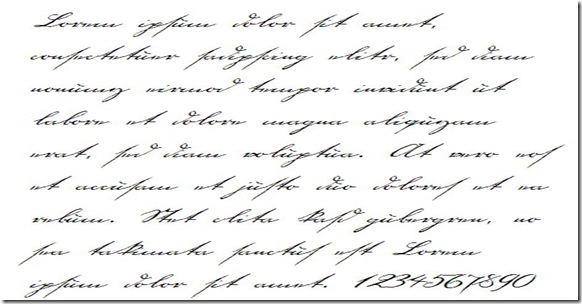 Lorem ipsum dolor sit amet,
consectetuer sadipscing elitr, sed diam
nonumy eirmod tempor invidunt ut
labore et dolore magna aliquyam
erat, sed diam voluptua. At vero eos
et accusam et justo duo dolores et ea
rebum. Stet clita kasd gubergren, no
sea takimata sanctus est Lorem
ipsum dolor sit amet. 1234567890